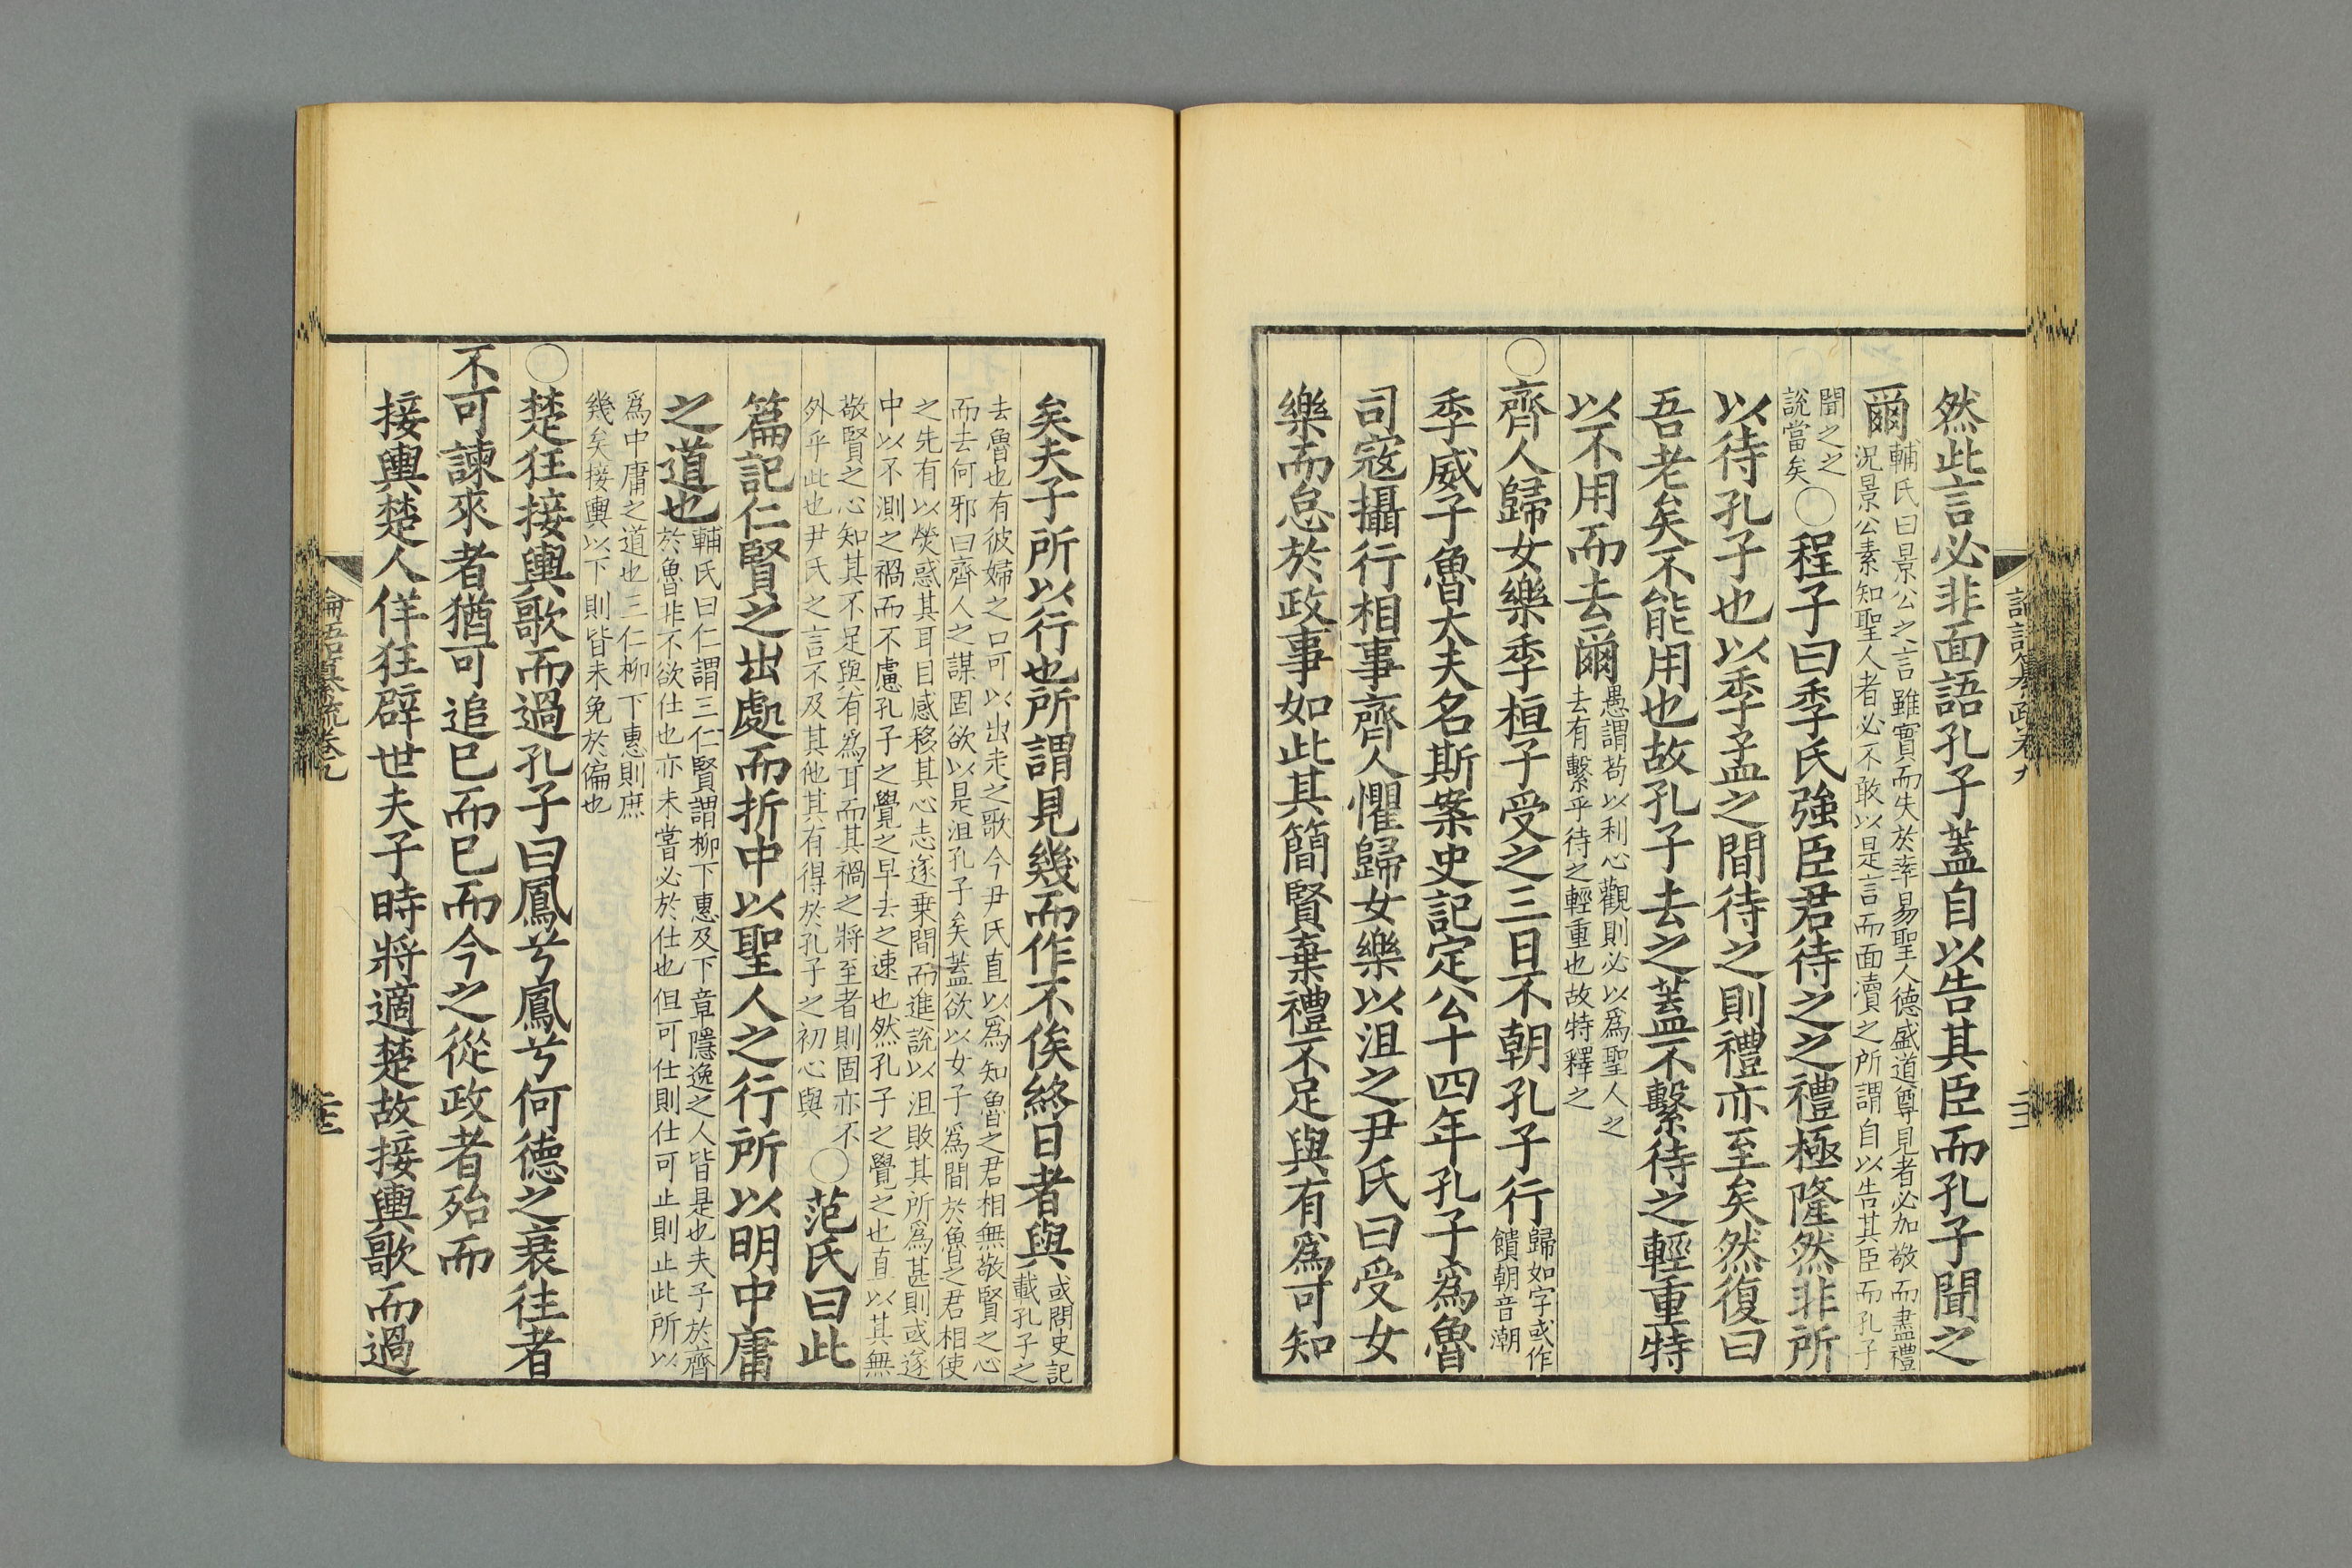 然此言必非面語孔子蓋自以告其臣而孔子聞之
爾輔氏曰景公之言雖實而失於率易聖人德盛道尊見者必加敬而盡禮
況景公素知聖人者必不敢以是言而面瀆之所謂自以告其臣而孔子
聞之之
說當矣〇程子曰季氏強臣君待之之禮極隆然非所
以待孔子也以季孟之間待之則禮亦至矣然復曰
吾老矣不能用也故孔子去之蓋不繫待之輕重特
以不用而去爾愚謂苟以利心觀則必以為聖人之
去有繫乎待之輕重也故特釋之
〇齊人歸女樂季桓子受之三日不朝孔子行歸如字或作
饋朝音潮
季威子魯大夫名斯案史記定公十四年孔子為魯
司寇攝行相事齊人懼歸女樂以沮之尹氏曰受女
樂而怠於政事如此其簡賢棄禮不足與有為可知
矣夫子所以行也所謂見幾而作不俟終日者與或問史記
載孔子之
去魯也有彼婦之口可以出走之歌今尹氏直以為知魯之君相無敬賢之心
而去何邪曰齊人之謀固欲以是沮孔子矣蓋欲以女子為間於魯之君相使
之先有以熒惑其耳目感移其心志遂乗間而進說以沮敗其所為甚則或遂
中以不測之禍而不慮孔子之覺之早去之速也然孔子之覺之也直以其無
敬賢之心知其不足與有為耳而其禍之將至者則固亦不
外乎此也尹氏之言不及其他其有得於孔子之初心與〇范氏曰此
篇記仁賢之出處而折中以聖人之行所以明中庸
之道也輔氏曰仁謂三仁賢謂柳下惠及下章隱逸之人皆是也夫子於齊
於魯非不欲仕也亦未嘗必於仕也但可仕則仕可止則止此所以
為中庸之道也三仁柳下惠則庶
幾矣接輿以下則皆未免於偏也
〇楚狂接輿歌而過孔子曰鳳兮鳳兮何德之衰往者
不可諫來者猶可追已而已而今之從政者殆而
接輿楚人佯狂辟世夫子時將適楚故接輿歌而過